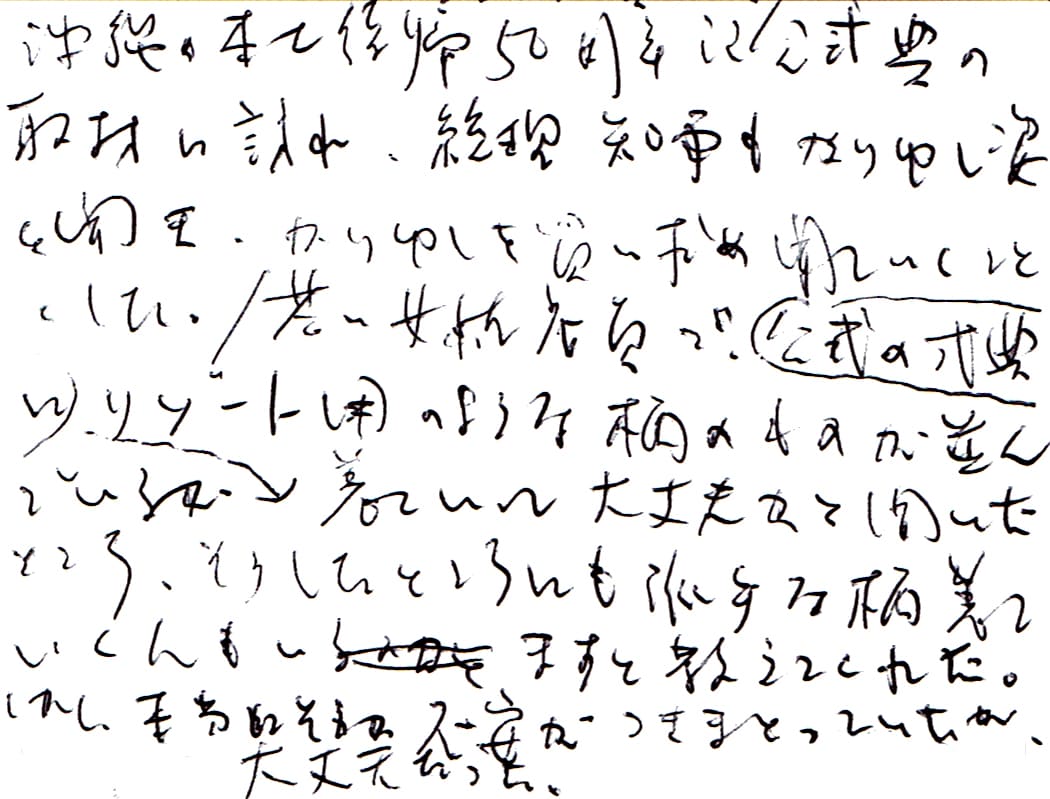 沖縄の本土復帰50周年記念式典の
取材に訪れ、総理 知事もかりゆし姿
と聞き、かりゆしを買い求め着ていくこと
にした。/若い女性店員で、公式の式典
リゾート用のような柄のものが並ん
でいるが 着ていって大丈夫かと聞いた
ところ、そうしたところにも派手な柄着て
いく人もいますと教えてくれた。
しかし本当に 不安がつきまとっていたが、
大丈夫だった。